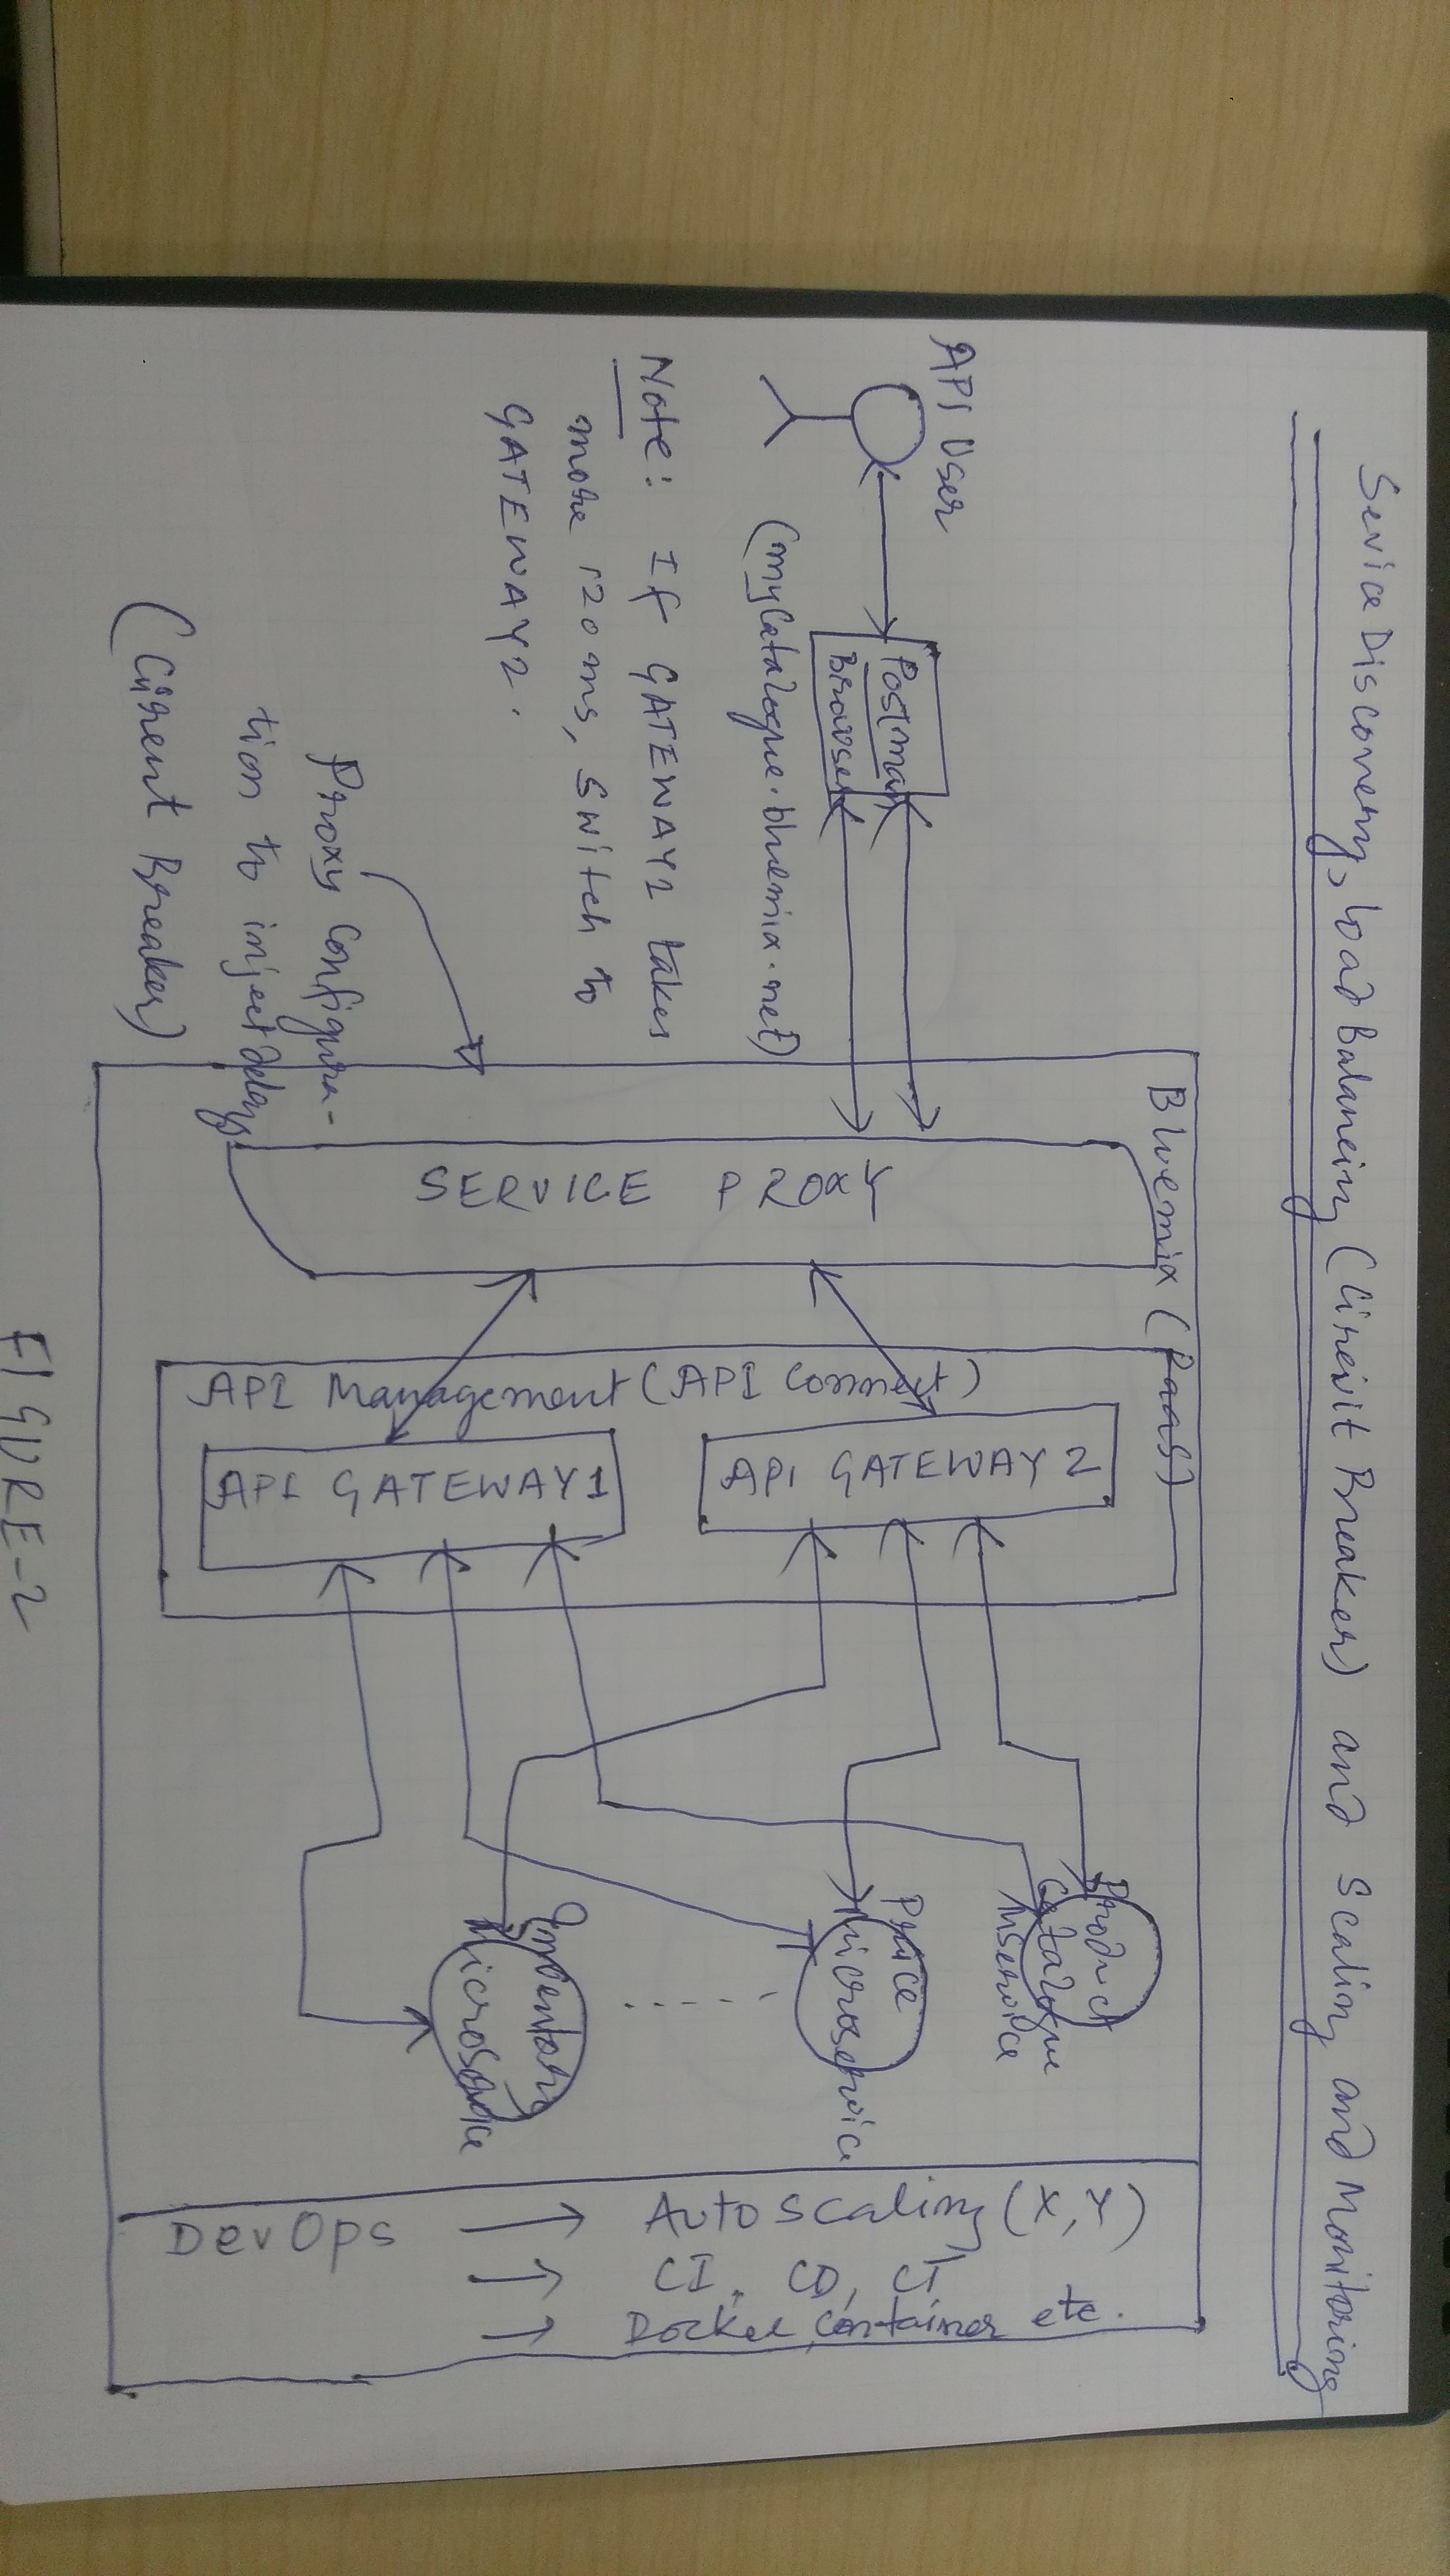 Service Discovery, Load Balancing (Circuit Breaker) and Scaling and Monitoring
Bluemix (Paas)
API User
Postman
Browser
(myCatalogue.bluemix.net)
Note: If GATEWAY2 takes
more 120 ms, switch to
GATEWAY2.
Proxy Configura-
tion to inject delay
(Current Breaker)
SERVICE PROXY
API Management (API Connect)
API GATEWAY 2
API GATEWAY1
Product
Catalogue
Price
Microservice
Inventory
Microservice
DevOps → Auto Scaling (X, Y)
→ CI, CD, CT
→ Docker Container etc.
FIGURE-2